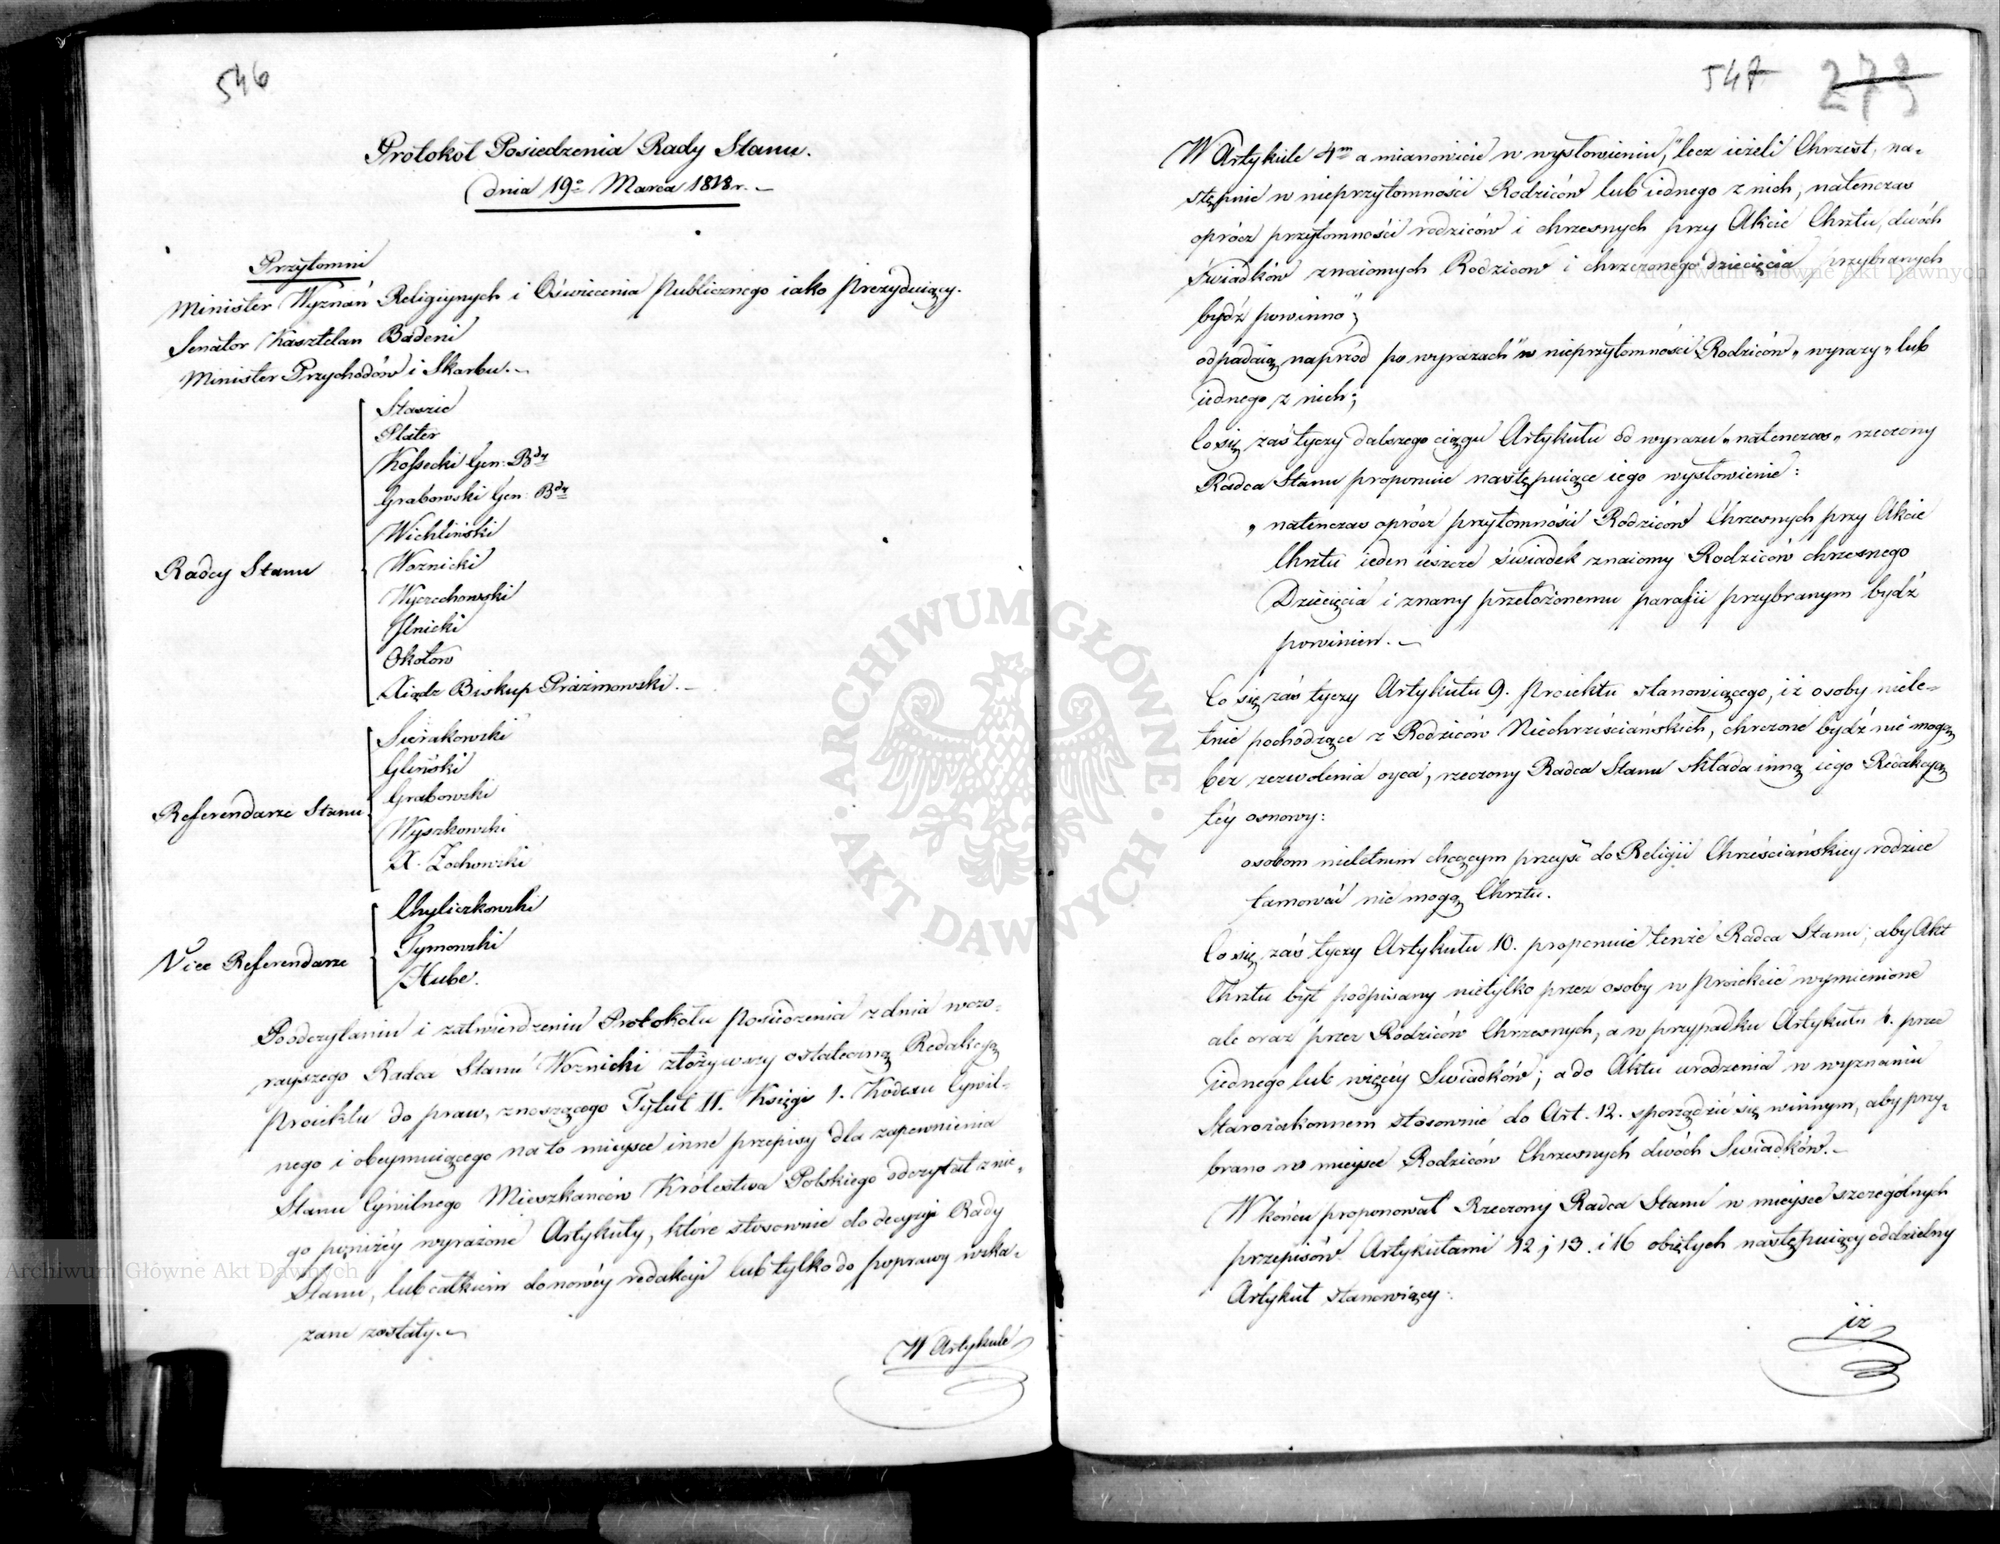 546
Protokół Posiedzenia Rady Stanu.
dnia 19º Marca 1818 r. –
Przytomni
Minister Wyznań Religiynych i Oświecenia Publicznego iako Prezyduiący.
Senator Kasztelan Badeni
Minister Przychodów i Skarbu. –
Radcy Stanu
Staszic
Plater
Kossecki Gen: Bdy
Grabowski Gen: Bdy
Wichliński
Woznicki
Wyczechowski
Ilnicki
Okołow
Xiądz Biskup Prażmowski. –
Referendarze Stanu
Sierakowski
Gliński
Grabowski
Wyszkowski
X. Żochowski
Vice Referendarze
Chyliczkowski
Tymowski
Hube.
Po odczytaniu i zatwierdzeniu Protokołu posiedzenia z dnia wczo-
rayszego Radca Stanu Woznicki złożywszy ostateczną Redakcyą
Proiektu do praw, znoszącego Tytuł II. Księgi 1. Kodexu Cywil-
nego i obeymuiącego na to mieysce inne przepisy dla zapewnienia
Stanu Cywilnego Mieszkańców Królestwa Polskiego odczytał z nie-
go poniżéy wyrażone Artykuły, które stosownie do decyzyi Rady
Stanu, lub całkiem do nowéy redakcyi lub tylko do poprawy wska-
zane zostały. –
W Artykule
547 273
W Artykule 4m a mianowicie w wysłowieniu, "lecz ieżeli Chrzest, na-
stępnie w nieprzytomności Rodziców lub iednego z nich, natenczas
oprócz przytomności rodziców i chrzesnych przy Akcie Chrztu, dwóch
świadków znaiomych Rodziców i chrzczonego dziecięcia przybranych
bydź powinno";
odpadaią naprzód po wyrazach "w nieprzytomności Rodziców" wyrazy "lub
iednego z nich;
Co się zaś tyczy dalszego ciągu Artykułu od wyrazu "natenczas" rzeczony
Radca Stanu proponuie następuiące iego wysłowienie:
"natenczas oprócz przytomności Rodziców Chrzesnych przy Akcie
Chrztu ieden ieszcze świadek znaiomy Rodziców chrzesnego
Dziecięcia i znany przełożonemu parafii przybranym bydź
powinien. –
Co się zaś tyczy Artykułu 9. Proiektu stanowiącego, iż osoby niele-
tnie pochodzące z Rodziców Niechrześciańskich, chrzczone bydź nie mogą
bez zezwolenia oyca, rzeczony Radca Stanu składa inną iego Redakcyą
téy osnowy:
osobom nieletnim chcącym przeyść do Religii Chrześciańskiey rodzice
tamować nie mogą Chrztu.
Co się zaś tyczy Artykułu 10. proponuie tenże Radca Stanu, aby Akt
Chrztu był podpisany nietylko przez osoby w Proiekcie wymienione
ale oraz przez Rodziców Chrzesnych, a w przypadku Artykułu 4. przez
iednego lub więcéy Swiadków; a do Aktu urodzenia w wyznaniu
Starozakonnem stosownie do Art. 12. sporządzić się winnym, aby przy-
brano w mieysce Rodziców Chrzesnych dwóch Swiadków. –
W końcu proponował Rzeczony Radca Stanu w mieysce szczególnych
przepisów Artykułami 12, 13. i 16 obiętych następuiący oddzielny
Artykuł stanowiący:
iż
ARCHIWUM GŁÓWNE · AKT DAWNYCH ·
Archiwum Główne Akt Dawnych
Archiwum Główne Akt Dawnych